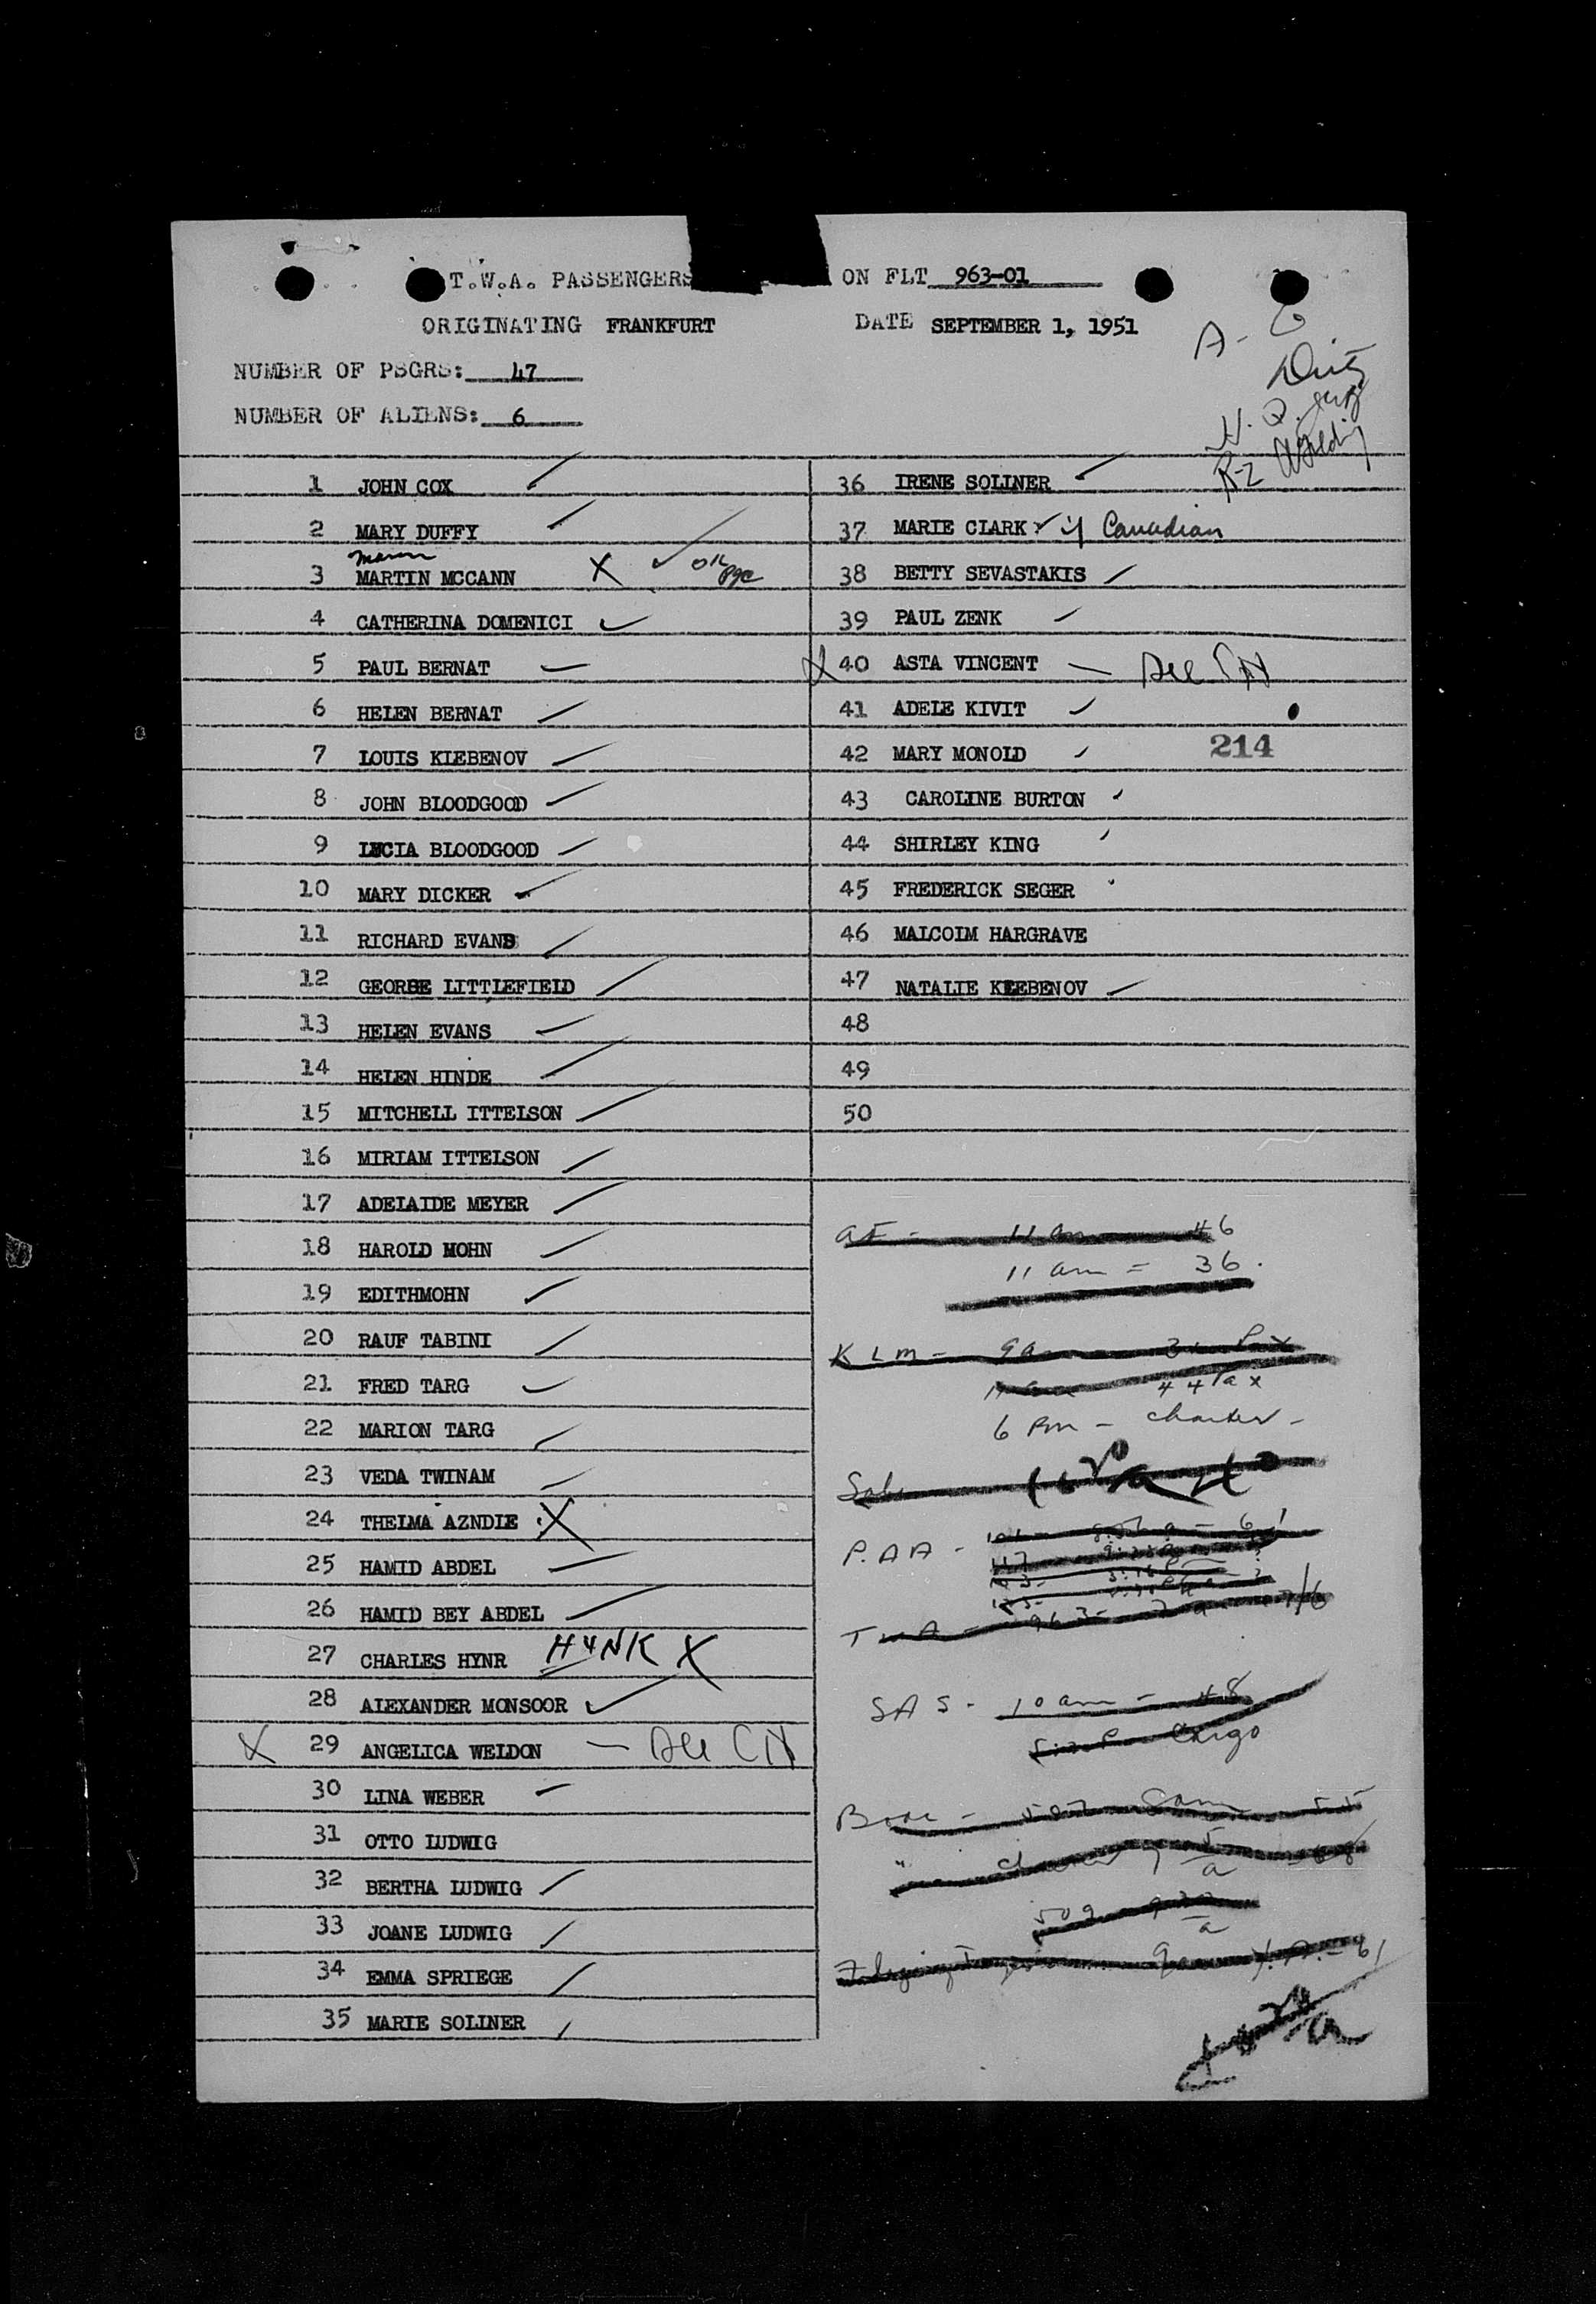 T.W.A. PASSENGERS ON FLT 963-01
ORIGINATING FRANKFURT DATE SEPTEMBER 1, 1951
NUMBER OF PSGRS: 47
NUMBER OF ALIENS: 6
A-
1 JOHN COX
2 MARY DUFFY
3 MARTIN MCCANN X OK
4 CATHERINA DOMENICI
5 PAUL BERNAT
6 HELEN BERNAT
7 LOUIS KLEBENOV
8 JOHN BLOODGOOD
9 LUCIA BLOODGOOD
10 MARY DICKER
11 RICHARD EVANS
12 GEORGE LITTLEFIELD
13 HELEN EVANS
14 HELEN HINDE
15 MITCHELL ITTELSON
16 MIRIAM ITTELSON
17 ADELAIDE MEYER
18 HAROLD MOHN
19 EDITHMOHN
20 RAUF TABINI
21 FRED TARG
22 MARION TARG
23 VEDA TWINAM
24 THELMA AZNDIE X
25 HAMID ABDEL
26 HAMID BEY ABDEL
27 CHARLES HYNR HYNK X
28 ALEXANDER MONSOOR
X 29 ANGELICA WELDON —
30 LINA WEBER
31 OTTO LUDWIG
32 BERTHA LUDWIG
33 JOANE LUDWIG
34 EMMA SPRIEGE
35 MARIE SOLLNER
36 IRENE SOLLNER
37 MARIE CLARK Canadian
38 BETTY SEVASTAKIS
39 PAUL ZENK
X 40 ASTA VINCENT —
41 ADELE KIVIT
42 MARY MONOLD 214
43 CAROLINE BURTON
44 SHIRLEY KING
45 FREDERICK SEGER
46 MALCOLM HARGRAVE
47 NATALIE KLEBENOV
48
49
50
AF - 11 am 46
11 am = 36.
KLM - 9a
44 Pax
6 Pm - charter -
P.AA -
TWA - 963-
SAS - 10 am - 48
Cargo
509